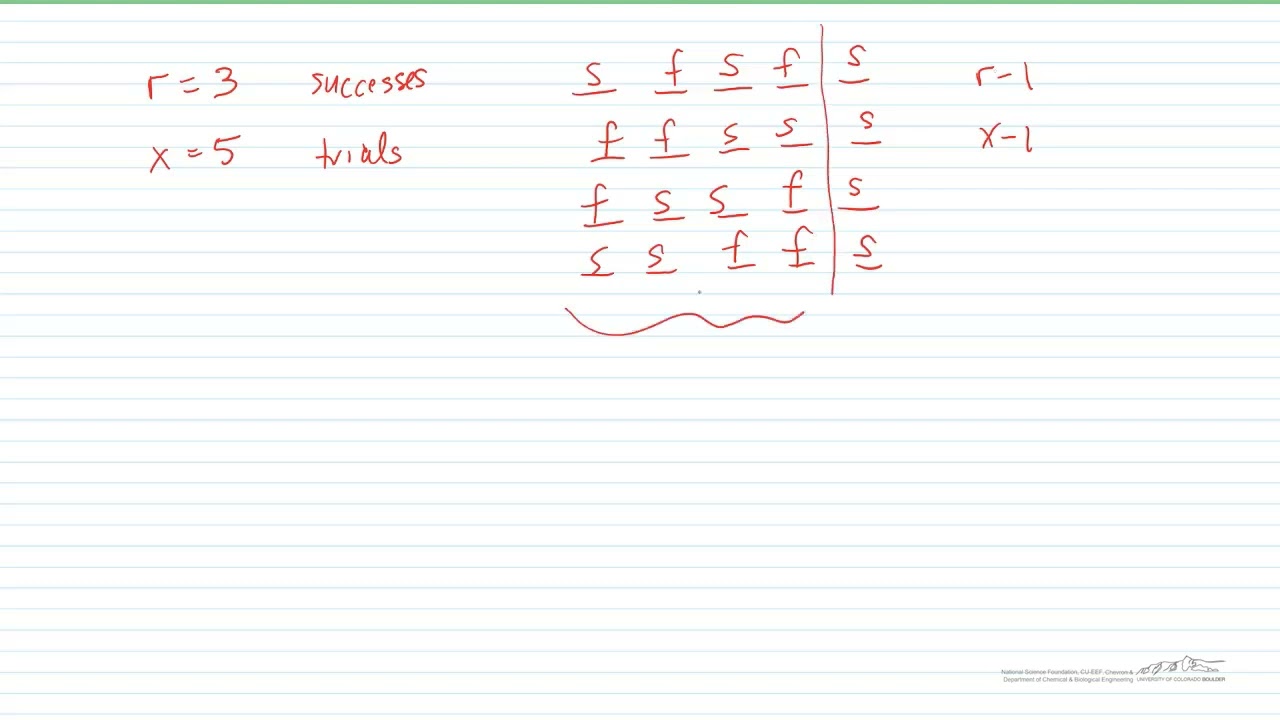 r = 3 successes s f s f | s r-1
x = 5 trials f f s s | s x-1
f s s f | s
s s f f | s
National Science Foundation, CU-EEF, Chevron &
Department of Chemical & Biological Engineering UNIVERSITY OF COLORADO BOULDER